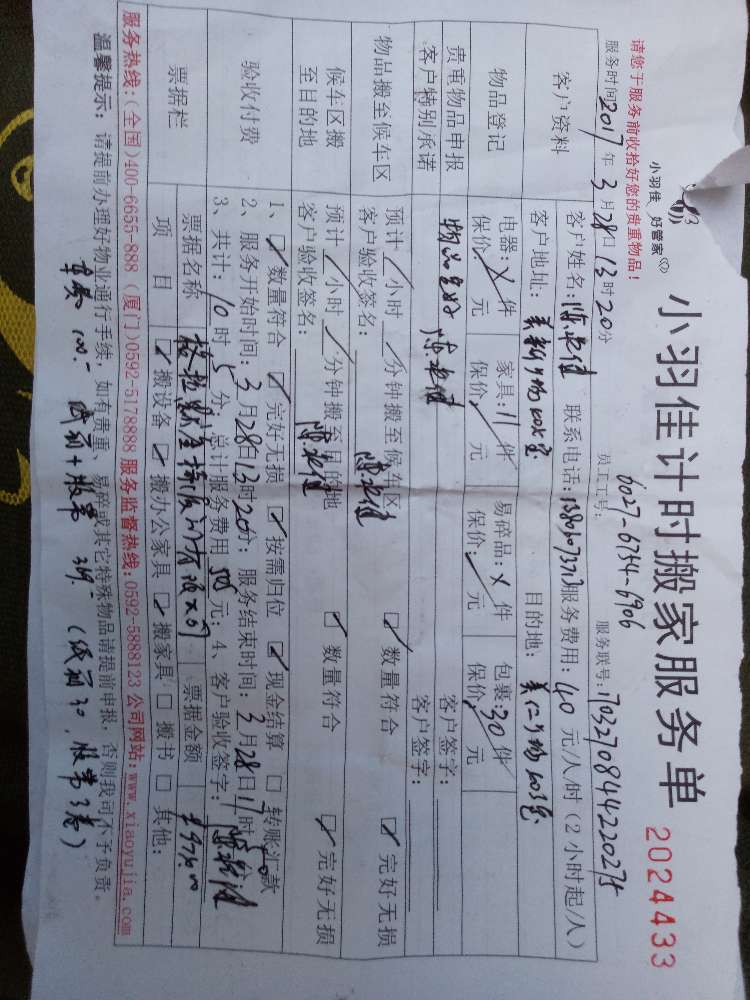 小羽佳 好管家
小羽佳计时搬家服务单 2024433
请您于服务前收拾好您的贵重物品！ 员工工号：6027-6754-6906 服务联号：1703270844220275
服务时间2017年3月28日13时20分
客户资料 客户姓名： 联系电话： 服务费用：40元/人/时（2小时起/人）
客户地址： 目的地：
物品登记 电器：X件 家具：11件 易碎品：X件 包裹：30件
保价：/元 保价：/元 保价：/元 保价：/元
贵重物品申报 物品完好 客户签字：
客户特别承诺 客户签字：
物品搬至候车区 预计/小时/分钟搬至候车区 ☑数量符合 ☑完好无损
客户验收签名：
候车区搬至目的地 预计/小时/分钟搬至目的地 ☑数量符合 ☑完好无损
客户验收签名：
验收付费 1、☑数量符合 ☑完好无损 ☑按需归位 ☑现金结算 □转账汇款
2、服务开始时间：3月28日13时20分；服务结束时间：3月28日
3、共计：10时5分；总计服务费用505元；4、客户验收签字：
票据栏 票据名称 票据金额
项目 ☑搬设备 ☑搬办公家具 ☑搬家具 □搬书 □其他：
服务热线：（全国）400-6655-888 （厦门）0592-5178888 服务监督热线：0592-5888123 公司网站：www.xiaoyujia.com
温馨提示：请提前办理好物业通行手续，如有贵重、易碎或其它特殊物品请提前申报，否则我司不予负责。